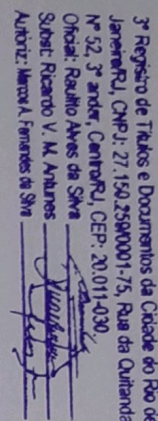 3º Registro de Títulos e Documentos da Cidade do Rio de
Janeiro/RJ, CNPJ: 27.150.259/0001-75, Rua da Quitanda
Nº 52, 3º andar, Centro/RJ, CEP: 20.011-030,
Oficial: Raulito Alves da Silva
Subst: Ricardo V. M. Antunes
Autoriz.: Marcos A. Fernandes da Silva